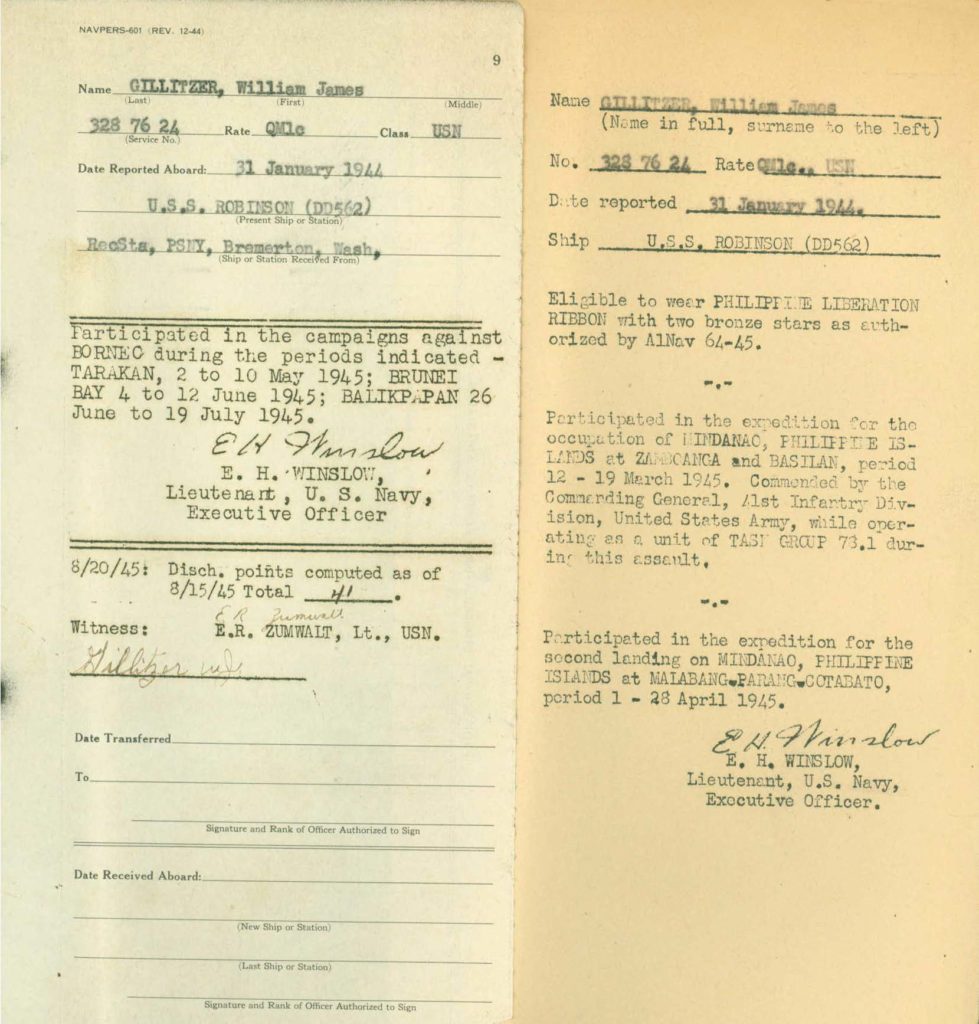 NAVPERS-601 (REV. 12-44)
9
Name GILLITZER, William James
(Last) (First) (Middle)
328 76 24 Rate QM1c Class USN
(Service No.)
Date Reported Aboard: 31 January 1944
U.S.S. ROBINSON (DD562)
(Present Ship or Station)
RecSta, PSNY, Bremerton, Wash,
(Ship or Station Received From)
Participated in the campaigns against
BORNEO during the periods indicated -
TARAKAN, 2 to 10 May 1945; BRUNEI
BAY 4 to 12 June 1945; BALIKPAPAN 26
June to 19 July 1945.
E H Winslow
E. H. WINSLOW,
Lieutenant, U. S. Navy,
Executive Officer
8/20/45: Disch. points computed as of
8/15/45 Total 41.
E R Zumwalt
Witness: E.R. ZUMWALT, Lt., USN.
Gillitzer W.J.
Date Transferred
To
Signature and Rank of Officer Authorized to Sign
Date Received Aboard:
(New Ship or Station)
(Last Ship or Station)
Signature and Rank of Officer Authorized to Sign
Name GILLITZER, William James
(Name in full, surname to the left)
No. 328 76 24 Rate QM1c., USN
Date reported 31 January 1944.
Ship U.S.S. ROBINSON (DD562)
Eligible to wear PHILIPPINE LIBERATION
RIBBON with two bronze stars as auth-
orized by AlNav 64-45.
-.-
Participated in the expedition for the
occupation of MINDANAO, PHILIPPINE IS-
LANDS at ZAMBOANGA and BASILAN, period
12 - 19 March 1945. Commended by the
Commanding General, 41st Infantry Div-
ision, United States Army, while oper-
ating as a unit of TASK GROUP 78.1 dur-
ing this assault.
-.-
Participated in the expedition for the
second landing on MINDANAO, PHILIPPINE
ISLANDS at MALABANG-PARANG-COTABATO,
period 1 - 28 April 1945.
E H. Winslow
E. H. WINSLOW,
Lieutenant, U.S. Navy,
Executive Officer.